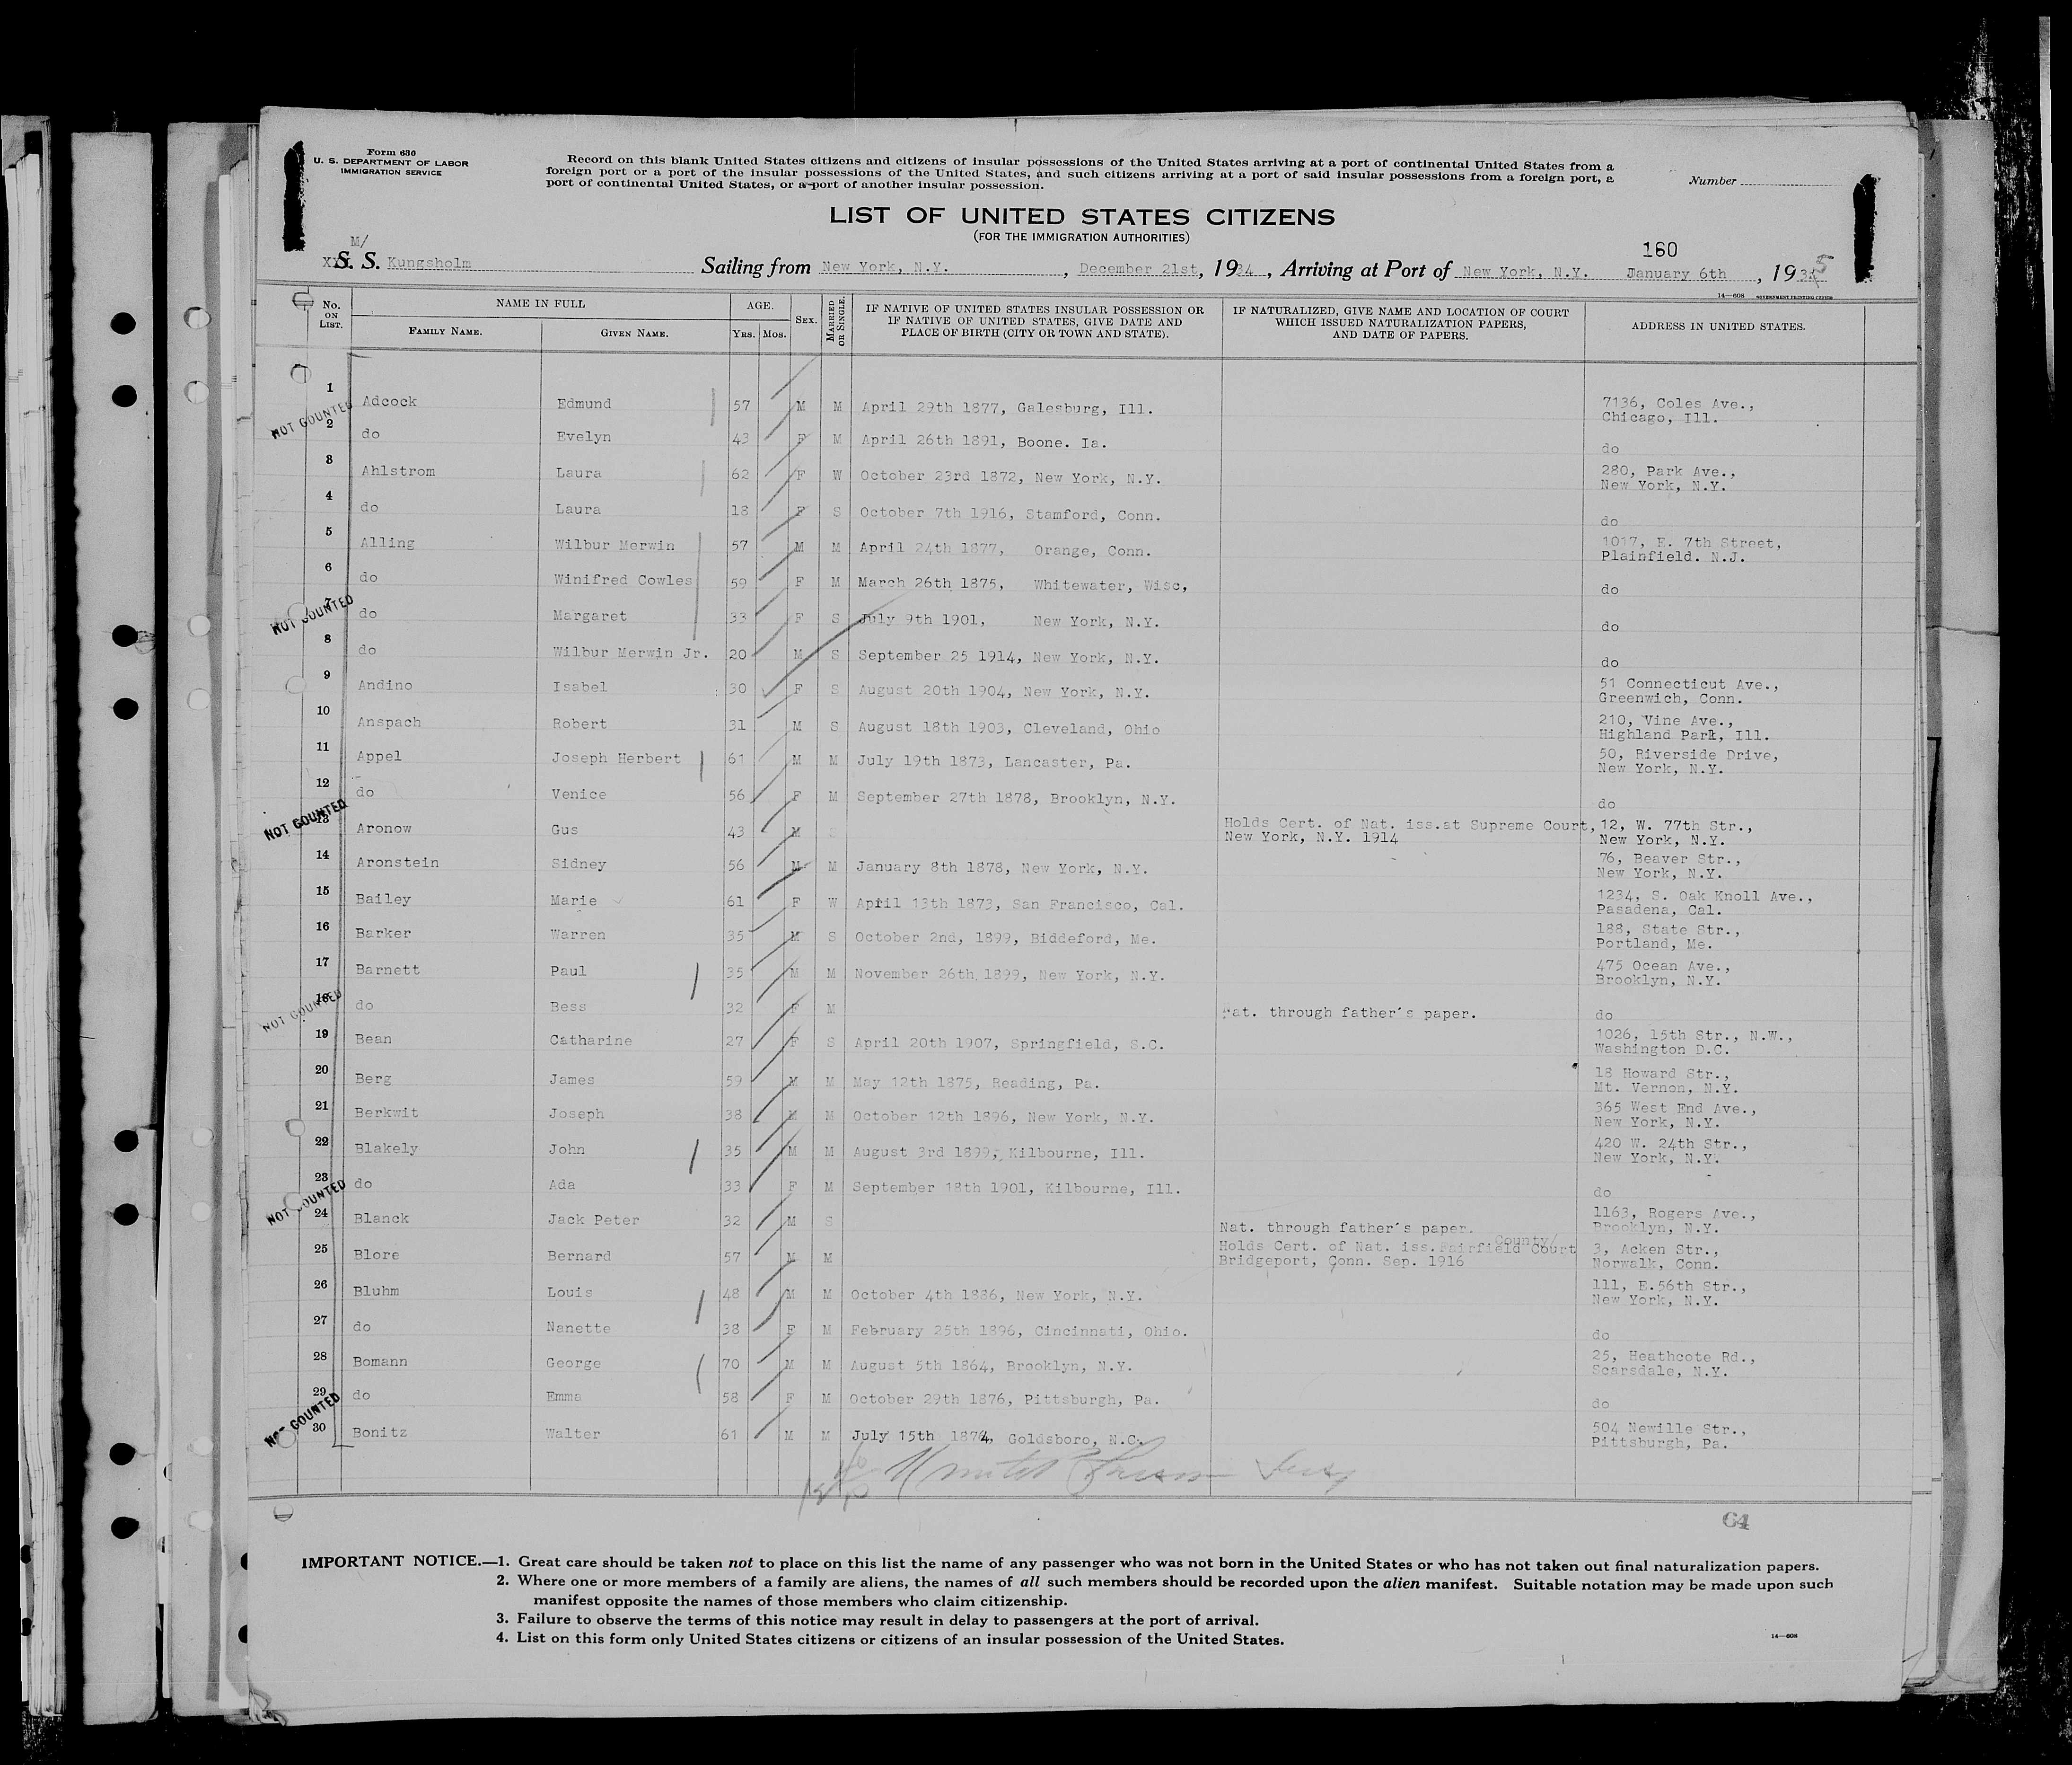 Form 630
U. S. DEPARTMENT OF LABOR
IMMIGRATION SERVICE
Record on this blank United States citizens and citizens of insular possessions of the United States arriving at a port of continental United States from a
foreign port or a port of the insular possessions of the United States, and such citizens arriving at a port of said insular possessions from a foreign port, a
port of continental United States, or a port of another insular possession.
Number
LIST OF UNITED STATES CITIZENS
(FOR THE IMMIGRATION AUTHORITIES)
160
M/
S. S. Kungsholm Sailing from New York, N.Y. , December 21st, 1934 , Arriving at Port of New York, N.Y. January 6th , 1935
14—608 GOVERNMENT PRINTING OFFICE
No. ON LIST. NAME IN FULL FAMILY NAME. GIVEN NAME. AGE. YRS. MOS. SEX. MARRIED OR SINGLE. IF NATIVE OF UNITED STATES INSULAR POSSESSION OR IF NATIVE OF UNITED STATES, GIVE DATE AND PLACE OF BIRTH (CITY OR TOWN AND STATE). IF NATURALIZED, GIVE NAME AND LOCATION OF COURT WHICH ISSUED NATURALIZATION PAPERS, AND DATE OF PAPERS. ADDRESS IN UNITED STATES.
1 Adcock Edmund 57 M M April 29th 1877, Galesburg, Ill. 7136, Coles Ave., Chicago, Ill.
NOT COUNTED
2 do Evelyn 43 F M April 26th 1891, Boone. Ia. do
3 Ahlstrom Laura 62 F W October 23rd 1872, New York, N.Y. 280, Park Ave., New York, N.Y.
4 do Laura 18 F S October 7th 1916, Stamford, Conn. do
5 Alling Wilbur Merwin 57 M M April 24th 1877, Orange, Conn. 1017, E. 7th Street, Plainfield. N.J.
6 do Winifred Cowles 59 F M March 26th 1875, Whitewater, Wisc, do
NOT COUNTED
7 do Margaret 33 F S July 9th 1901, New York, N.Y. do
8 do Wilbur Merwin Jr. 20 M S September 25 1914, New York, N.Y. do
9 Andino Isabel 30 F S August 20th 1904, New York, N.Y. 51 Connecticut Ave., Greenwich, Conn.
10 Anspach Robert 31 M S August 18th 1903, Cleveland, Ohio 210, Vine Ave., Highland Park, Ill.
11 Appel Joseph Herbert 61 M M July 19th 1873, Lancaster, Pa. 50, Riverside Drive, New York, N.Y.
12 do Venice 56 F M September 27th 1878, Brooklyn, N.Y. do
NOT COUNTED
13 Aronow Gus 43 M S Holds Cert. of Nat. iss.at Supreme Court, New York, N.Y. 1914 12, W. 77th Str., New York, N.Y.
14 Aronstein Sidney 56 M M January 8th 1878, New York, N.Y. 76, Beaver Str., New York, N.Y.
15 Bailey Marie 61 F W April 13th 1873, San Francisco, Cal. 1234, S. Oak Knoll Ave., Pasadena, Cal.
16 Barker Warren 35 M S October 2nd, 1899, Biddeford, Me. 188, State Str., Portland, Me.
17 Barnett Paul 35 M M November 26th 1899, New York, N.Y. 475 Ocean Ave., Brooklyn, N.Y.
NOT COUNTED
18 do Bess 32 F M Nat. through father's paper. do
19 Bean Catharine 27 F S April 20th 1907, Springfield, S.C. 1026, 15th Str., N.W., Washington D.C.
20 Berg James 59 M M May 12th 1875, Reading, Pa. 18 Howard Str., Mt. Vernon, N.Y.
21 Berkwit Joseph 38 M M October 12th 1896, New York, N.Y. 365 West End Ave., New York, N.Y.
22 Blakely John 35 M M August 3rd 1899, Kilbourne, Ill. 420 W. 24th Str., New York, N.Y.
23 do Ada 33 F M September 18th 1901, Kilbourne, Ill. do
NOT COUNTED
24 Blanck Jack Peter 32 M S Nat. through father's paper. 1163, Rogers Ave., Brooklyn, N.Y.
25 Blore Bernard 57 M M Holds Cert. of Nat. iss.Fairfield County/ Court Bridgeport, Conn. Sep. 1916 3, Acken Str., Norwalk, Conn.
26 Bluhm Louis 48 M M October 4th 1886, New York, N.Y. 111, E.56th Str., New York, N.Y.
27 do Nanette 38 F M February 25th 1896, Cincinnati, Ohio. do
28 Bomann George 70 M M August 5th 1864, Brooklyn, N.Y. 25, Heathcote Rd., Scarsdale, N.Y.
29 do Emma 58 F M October 29th 1876, Pittsburgh, Pa. do
NOT COUNTED
30 Bonitz Walter 61 M M July 15th 1874, Goldsboro, N.C. 504 Newille Str., Pittsburgh, Pa.
C4
IMPORTANT NOTICE.—1. Great care should be taken not to place on this list the name of any passenger who was not born in the United States or who has not taken out final naturalization papers.
2. Where one or more members of a family are aliens, the names of all such members should be recorded upon the alien manifest. Suitable notation may be made upon such
manifest opposite the names of those members who claim citizenship.
3. Failure to observe the terms of this notice may result in delay to passengers at the port of arrival.
4. List on this form only United States citizens or citizens of an insular possession of the United States.
14—608